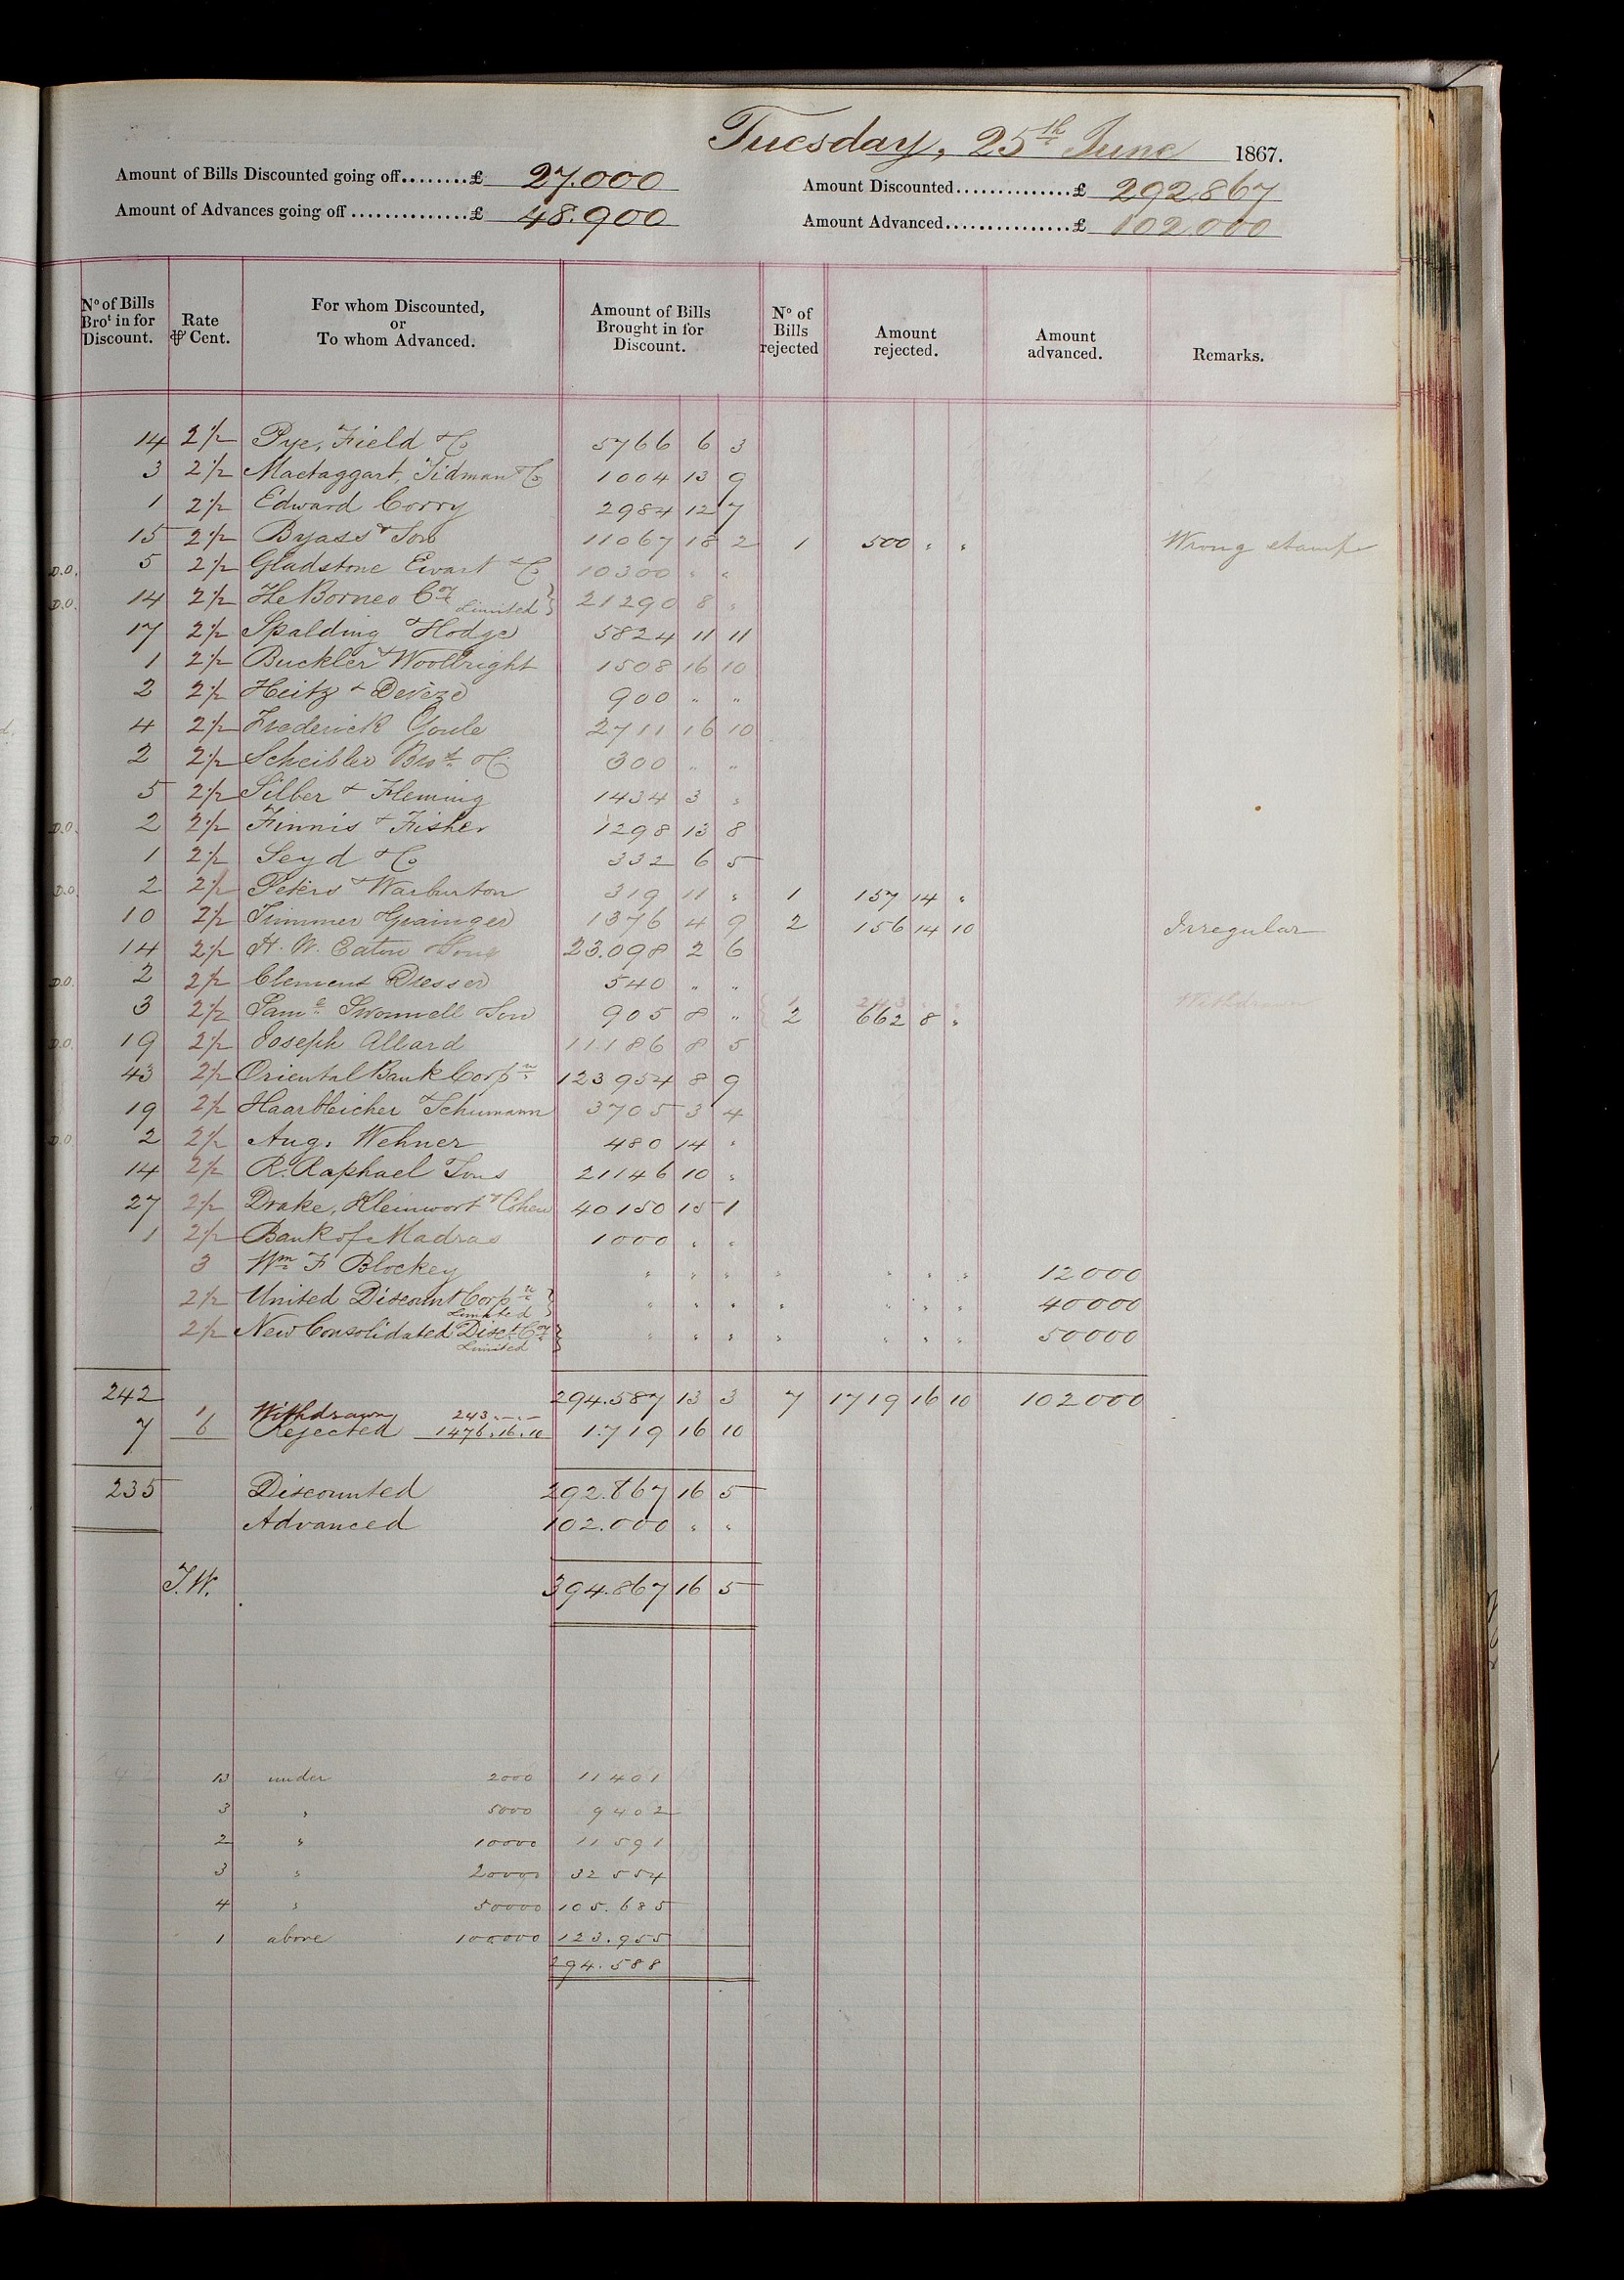 Tuesday, 25th June 1867.
Amount of Bills Discounted going off........£ 27.000
Amount Discounted..............£ 292.867
Amount of Advances going off..............£ 48.900
Amount Advanced...............£ 102.000
No of Bills Brot in for Discount. Rate ⅌ Cent. For whom Discounted, or To whom Advanced. Amount of Bills Brought in for Discount. No of Bills rejected Amount rejected. Amount advanced. Remarks.
14 2½ Pye, Field & Co 5766 6 3
3 2½ Mactaggart, Tidman & Co 1004 13 9
1 2½ Edward Corry 2984 12 7
15 2½ Byass & Son 11067 18 2 1 500 " " Wrong stamp
D.O. 5 2½ Gladstone Ewart & Co 10300 " "
D.O. 14 2½ The Borneo Coy Limited } 21290 8 "
17 2½ Spalding & Hodge 5824 11 11
1 2½ Buckler & Woolbright 1508 16 10
2 2½ Heitz & Devèze 900 " "
4 2½ Frederick Youle 2711 16 10
2 2½ Scheibler Bros & Co 300 " "
5 2½ Silber & Fleming 1434 3 "
D.O. 2 2½ Finnis & Fisher 1298 13 8
1 2½ Seyd & Co 332 6 5
D.O. 2 2½ Peters & Warburton 319 11 " 1 157 14 "
10 2½ Trimmer & Grainger 1376 4 9 2 156 14 10 Irregular
14 2½ H. W. Eaton & Sons 23.098 2 6
D.O. 2 2½ Clement Dresser 540 " "
3 2½ Saml Swonnell & Son 905 8 " { 1 243 " " Withdrawn
2 662 8 "
D.O. 19 2½ Joseph Allard 11.186 8 5
43 2½ Oriental Bank Corpn 123954 8 9
19 2½ Haarbleicher & Schumann 3705 3 4
D.O. 2 2½ Aug. Wehner 480 14 "
14 2½ R. Raphael & Sons 21146 10 "
27 2½ Drake, Kleinwort & Cohen 40150 15 1
1 2½ Bank of Madras 1000 " "
3 Wm F Blockey " " " " " " " 12000
2½ United Discount Corpn Limited } " " " " " " " 40000
2½ New Consolidated Disct Coy Limited } " " " " " " " 50000
242 294.587 13 3 7 1719 16 10 102000
1 Withdrawn 243.-.-
7 6 Rejected 1476.16.10 1.719 16 10
235 Discounted 292.867 16 5
Advanced 102.000 " "
J.W. 394.867 16 5
13 under 2000 11401
3 " 5000 9402
2 " 10000 11591
3 " 20000 32554
4 " 50000 105.685
1 above 100000 123.955
294.588